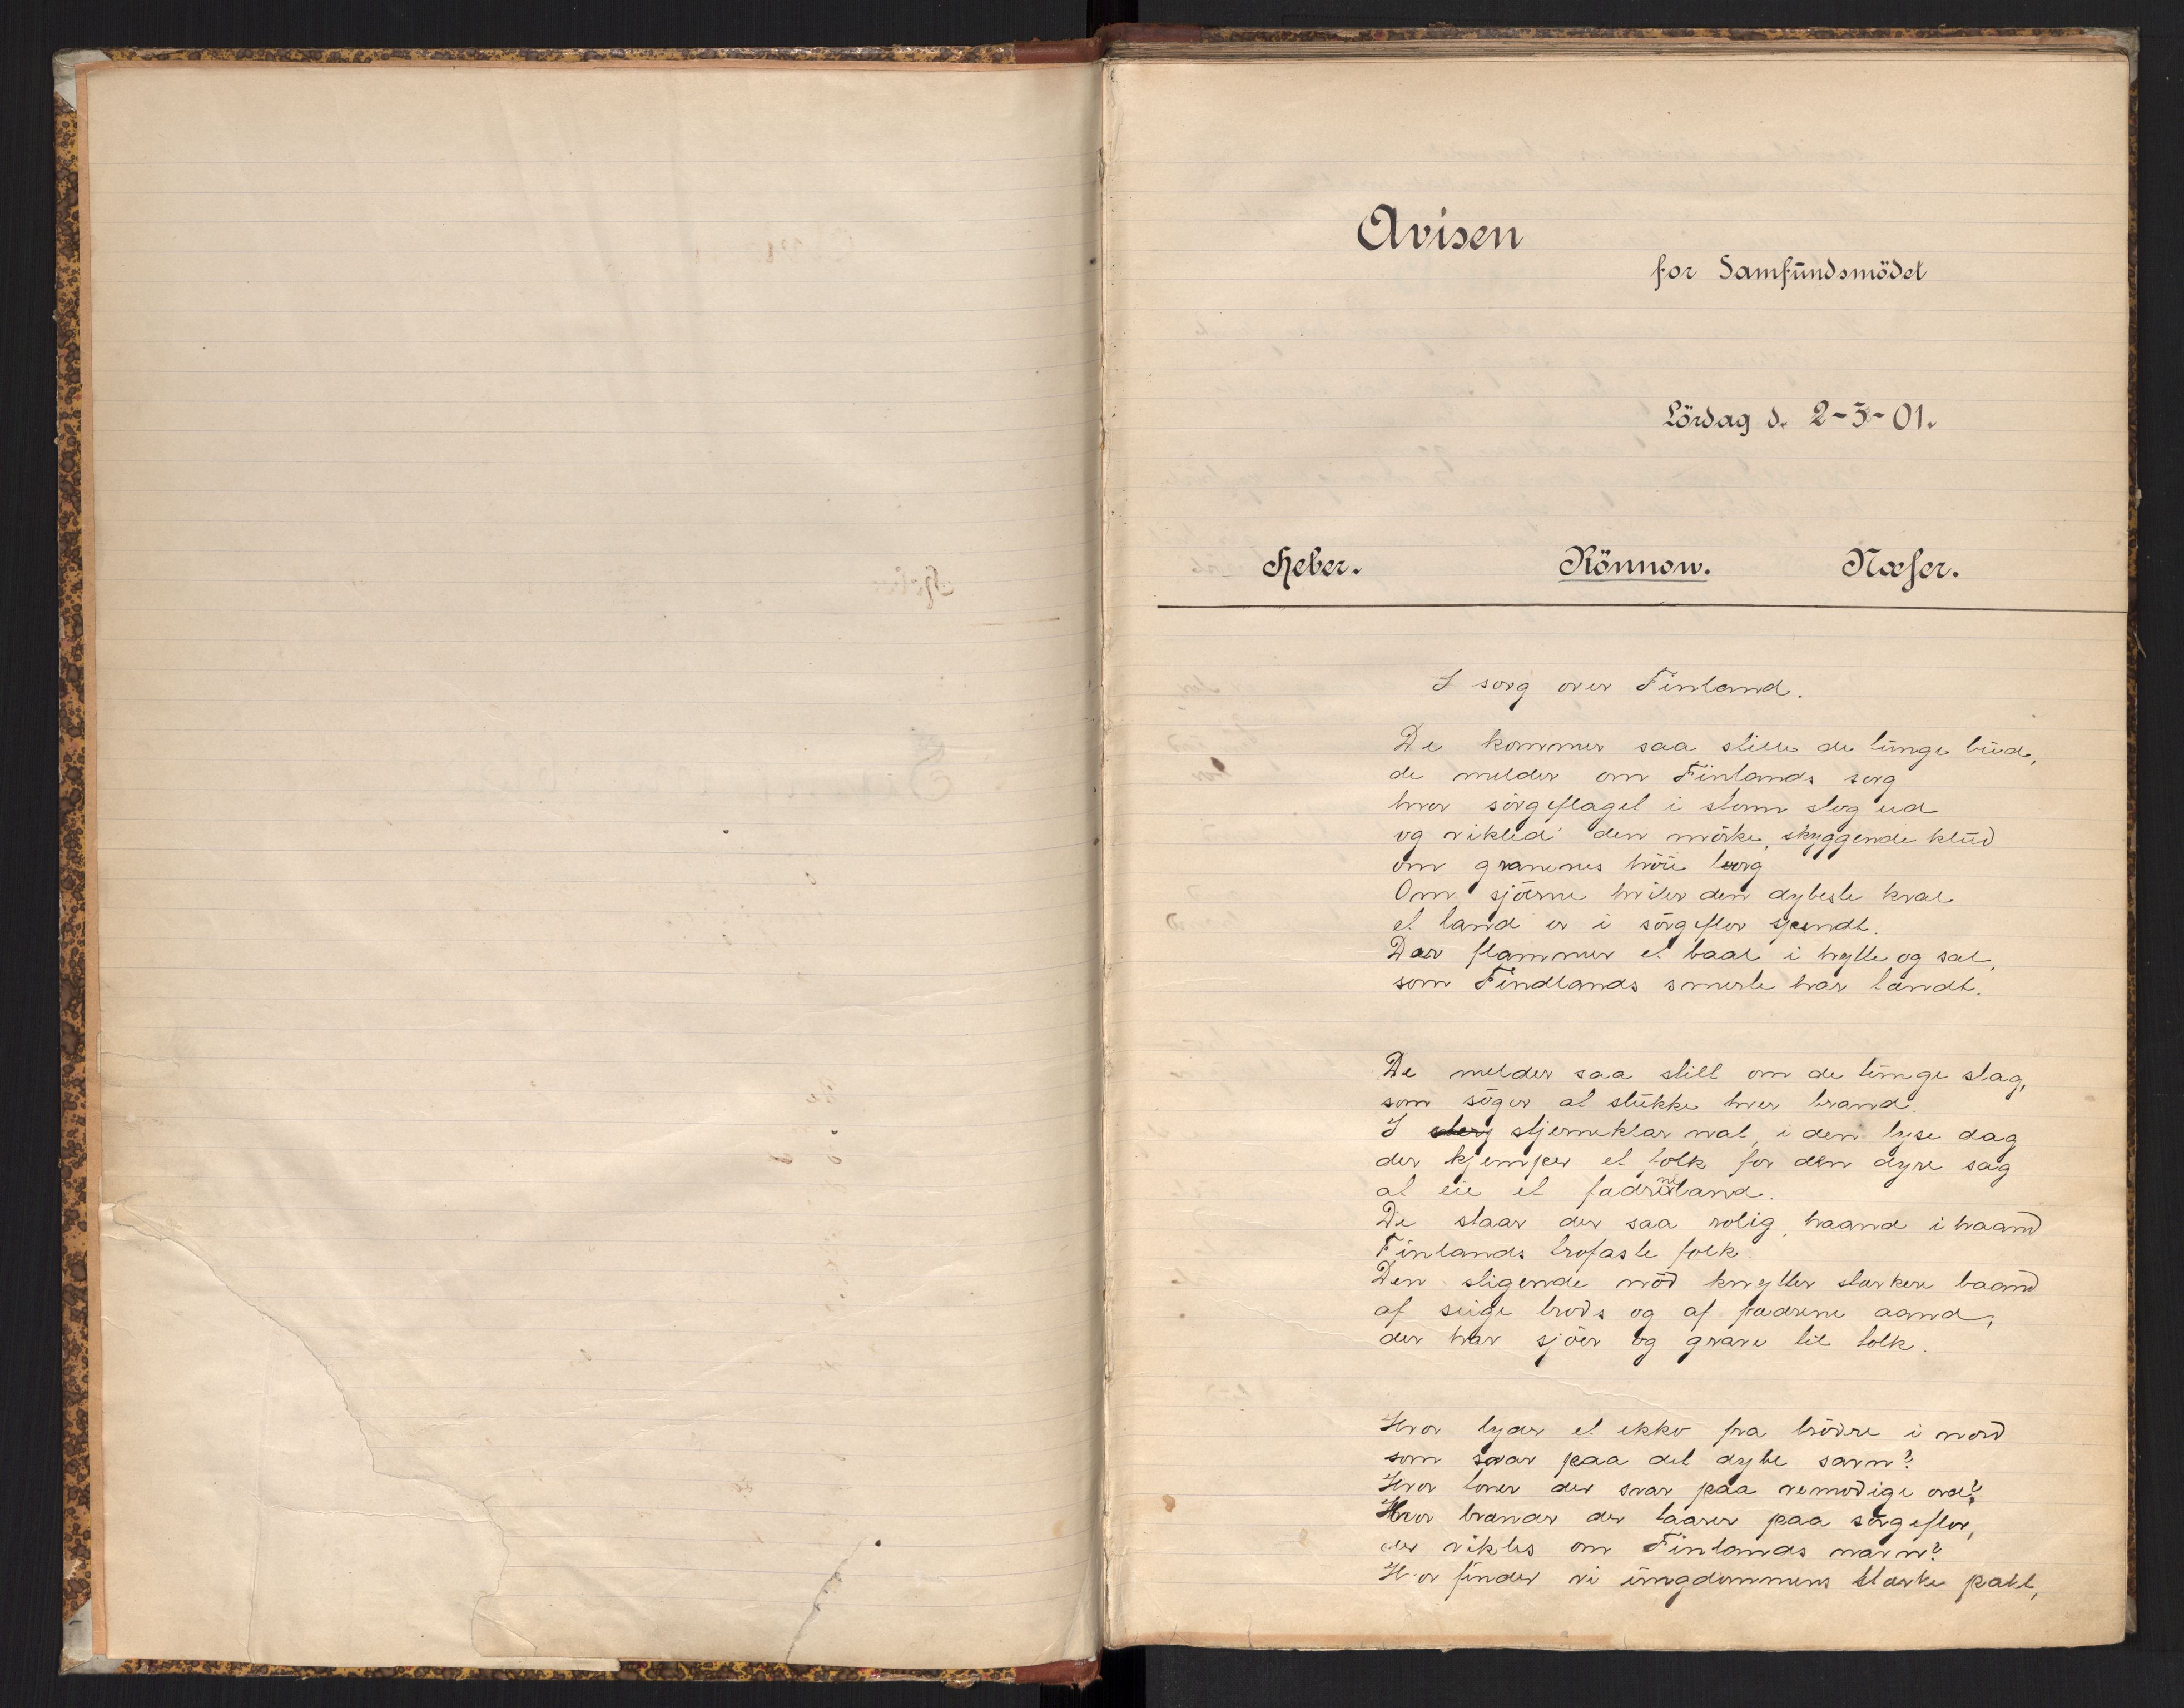 Avisen
for Samfundsmödet
Lördag d. 2-3-01.
Heber. Rönnow. Næser.
I sorg over Finland.
De kommer saa stille de tunge bud,
de melder om Finlands sorg
hvor sörgeflaget i storm slog ud
og vikled' den mörke, skyggende klud
om granenes höie borg
Om sjöerne hviler den dybeste kval
et land er i sörgeflor spændt.
Der flammer et baal i hytte og sal,
som Findlands smerte har tændt.
De melder saa still om de tunge slag,
som söger at slukke hver brand.
I stjerneklar nat, i den lyse dag
der kjemper et folk for den dyre sag
at eie et fædreneland.
De staar der saa rolig, haand i haand
Finlands trofaste folk
Den stigende nöd knytter stærkere baand
af seige trods og af fædrene aand,
der har sjöer og grave til tolk.
Hvor lyder et ekko fra brödre i nord
som svar paa det dybe savn?
Hvor toner der svar paa vemodige ord?
Hvor brænder der taarer paa sörgeflor,
der vikles om Finlands navn?
Hvor finder vi ungdommens stærke pakt,